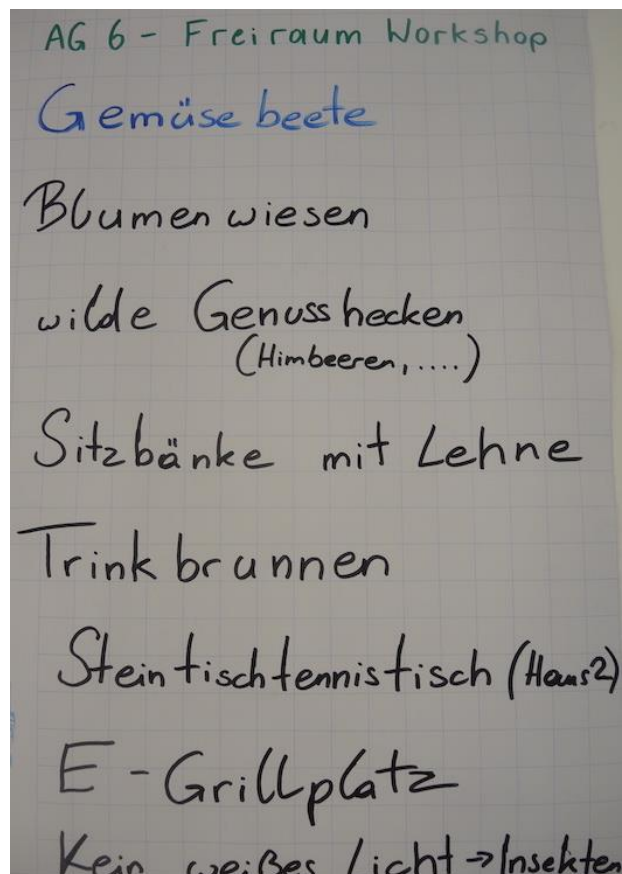 AG 6 - Freiraum Workshop
Gemüsebeete
Blumenwiesen
wilde Genusshecken
(Himbeeren, ....)
Sitzbänke mit Lehne
Trinkbrunnen
Steintischtennistisch (Haus2)
E-Grillplatz
Kein weißes Licht → Insekten